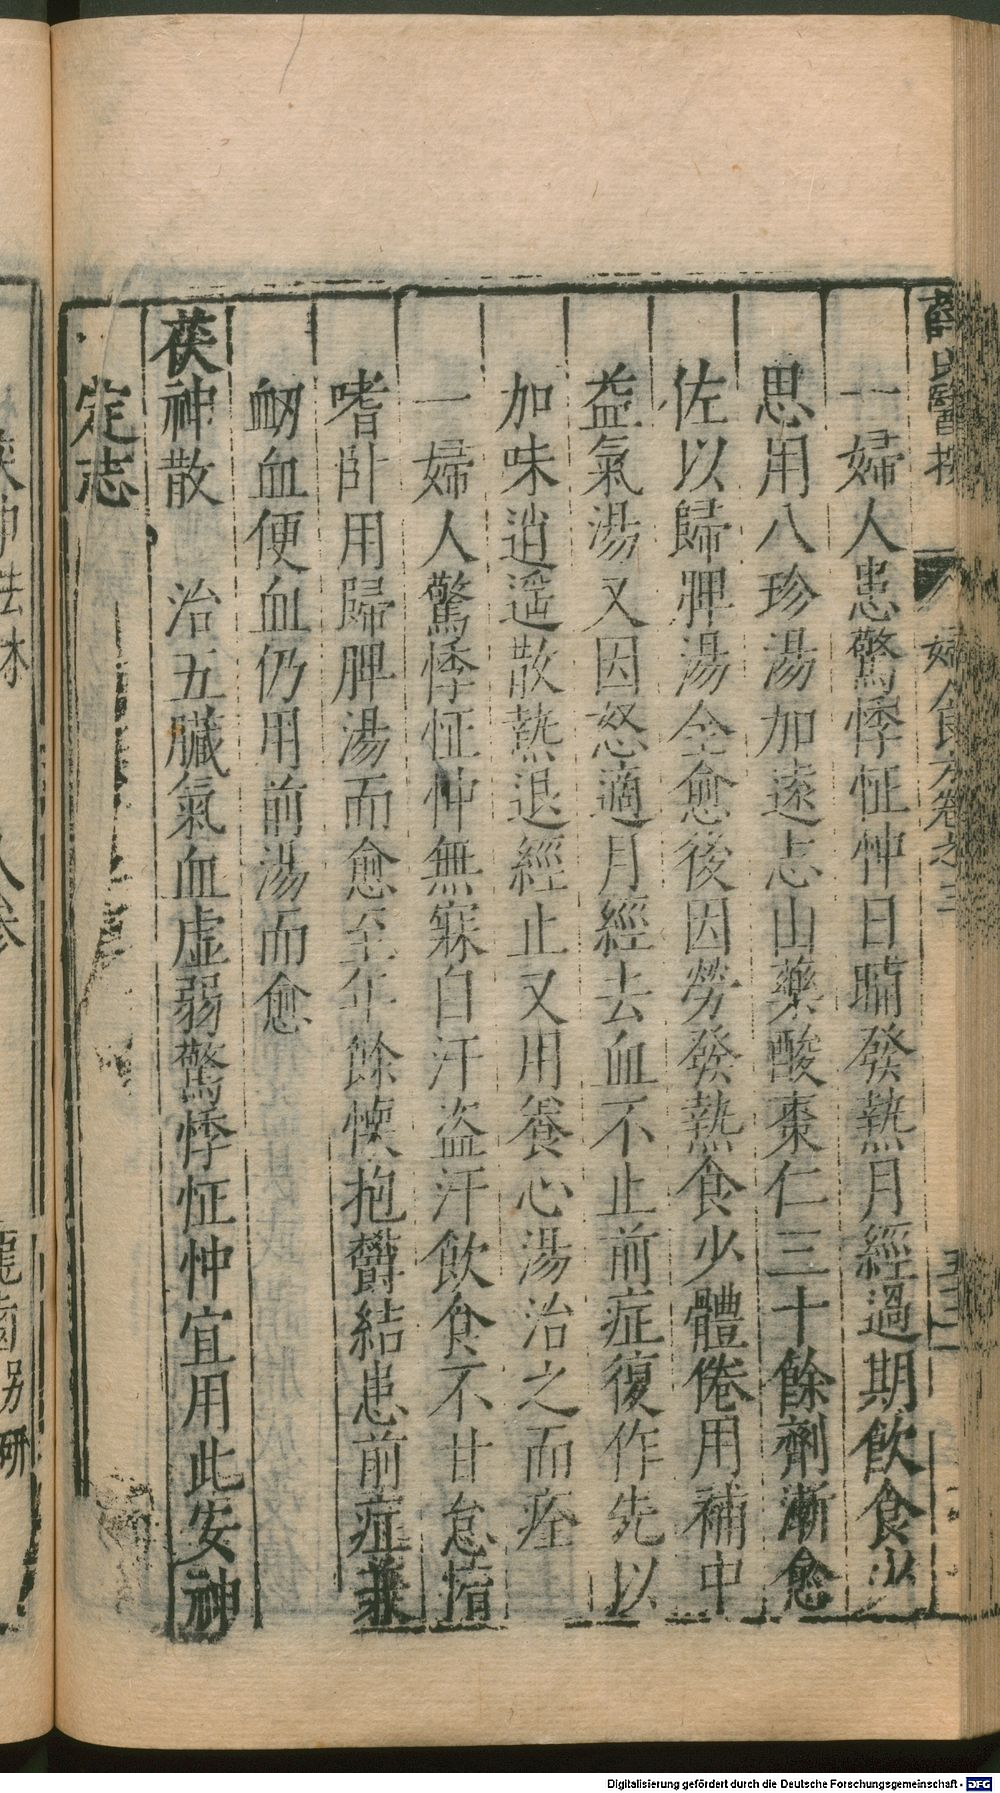 婦人患驚悸怔忡日晡發熱月經過期飲食少
思用八珍湯加遠志山藥酸棗仁三十餘劑漸愈
佐以歸脾湯全愈後因勞發熱食少體倦用補中
益氣湯又因怒適月經去血不止前症復作先以
加味逍遥散熱退經止又用養心湯治之而痊
一婦人驚悸怔忡無寐自汗盗汗飲食不甘怠惰
嗜卧用歸脾湯而愈至年餘懷抱欝結患前症兼
衂血便血仍用前湯而愈
茯神散 治五臟氣血虚弱驚悸怔忡宜用此安神
定志
Digitalisierung gefördert durch die Deutsche Forschungsgemeinschaft - DFG